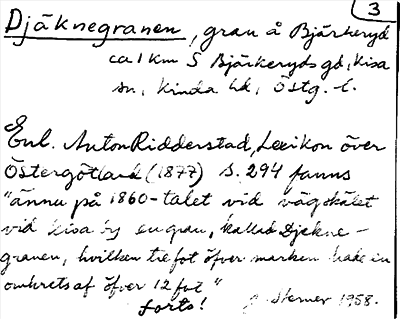 3
Djäknegranen, gran å Bjärkeryd
ca 1 km S Bjärkeryds gd, Kisa
sn, Kinda hd, Östg. l.
Enl. Anton Ridderstad, Lexikon över
Östergötland (1877) s. 294 fanns
"ännu på 1860-talet vid vägskälet
vid Kisa by en gran, kallad Djekne-
granen, hvilken tre fot öfver marken hade en
omkrets af öfver 12 fot"
forts! Sterner 1958.